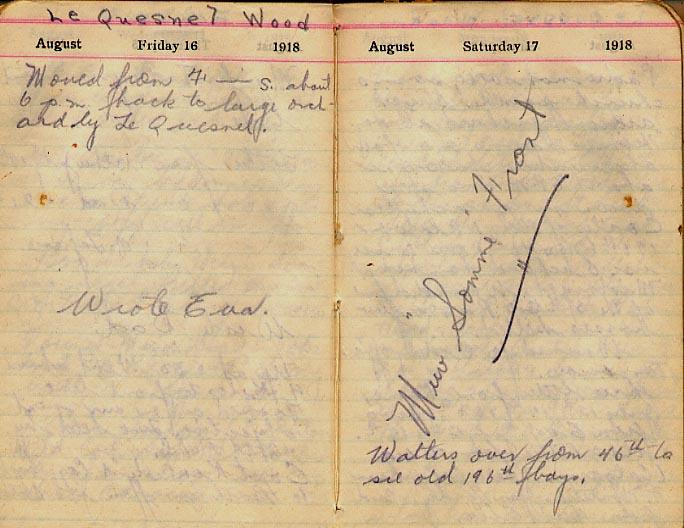 Le Quesnel Wood
August Friday 16 1918
Moved from 4 — s. about
6 p.m. back to large orch-
ard by Le Quesnel.
Wrote Eva.
August Saturday 17 1918
"Somme" Front
Walters over from 46th to
see old 196th boys.